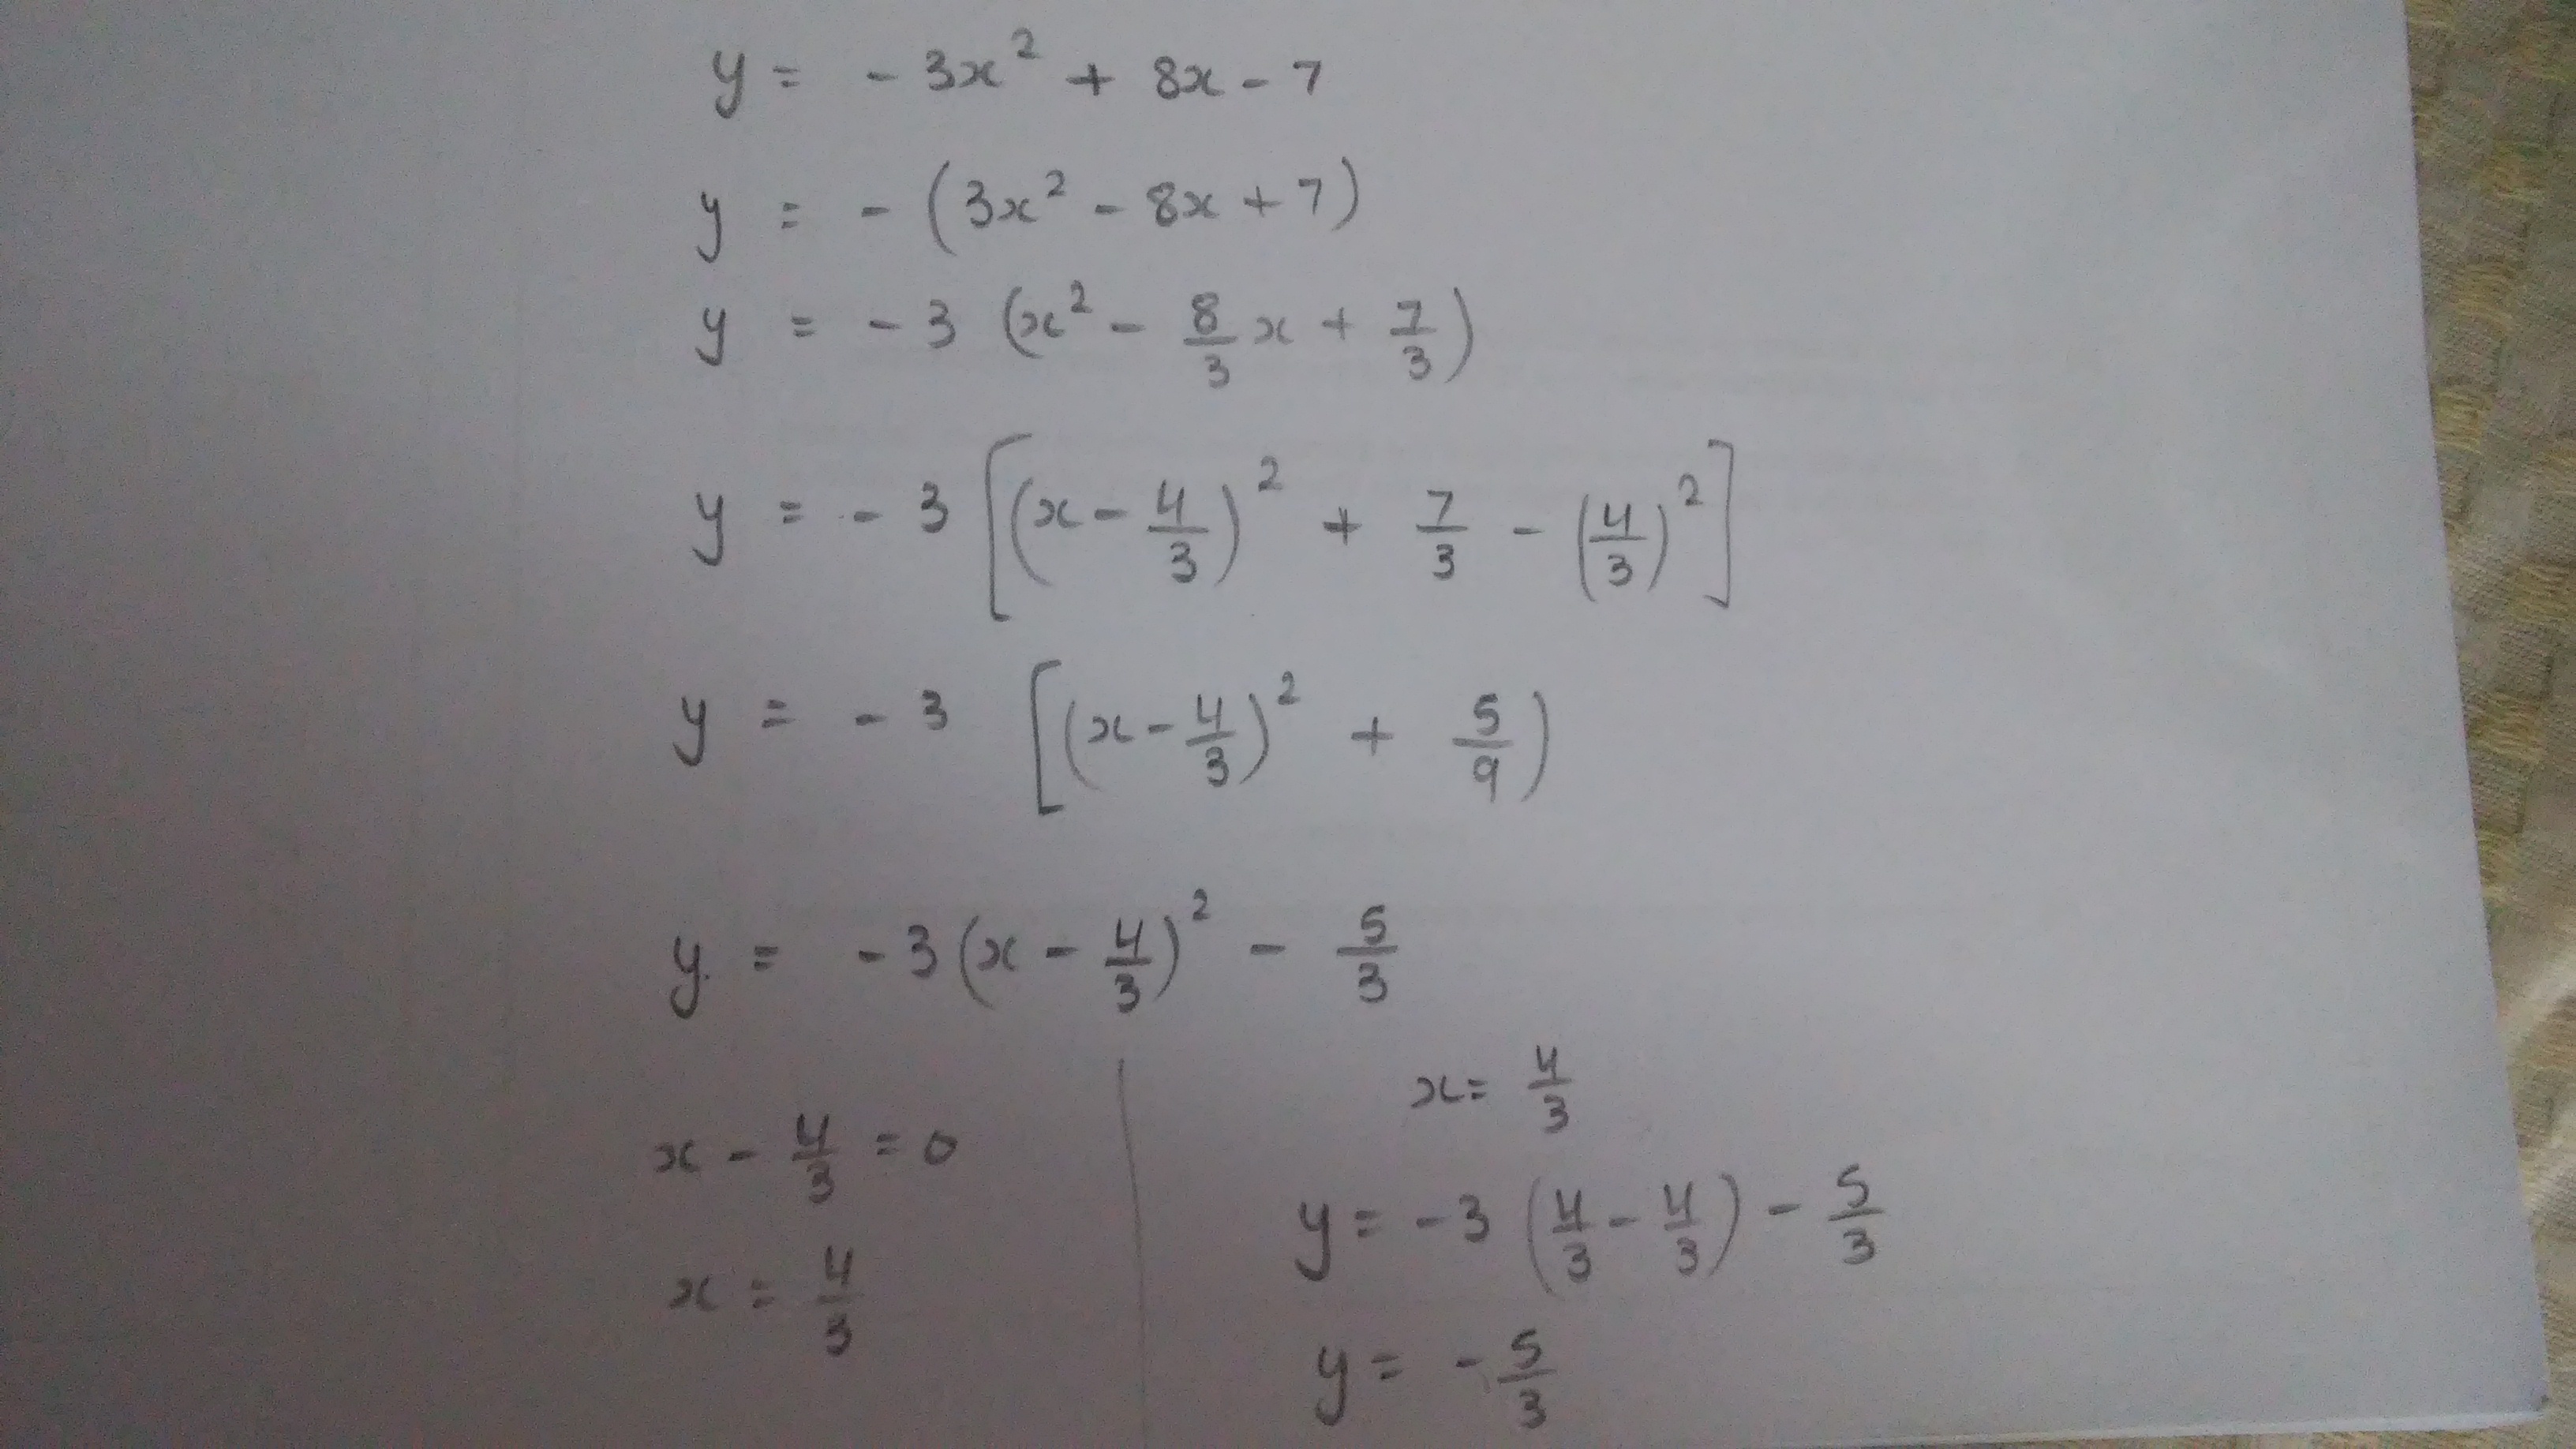 y = - 3x² + 8x - 7
y = - (3x² - 8x + 7)
y = - 3 (x² - 8/3 x + 7/3)
y = - 3 [(x - 4/3)² + 7/3 - (4/3)²]
y = - 3 [(x - 4/3)² + 5/9)
y = - 3 (x - 4/3)² - 5/3
x - 4/3 = 0
x = 4/3
x = 4/3
y = - 3 (4/3 - 4/3) - 5/3
y = - 5/3